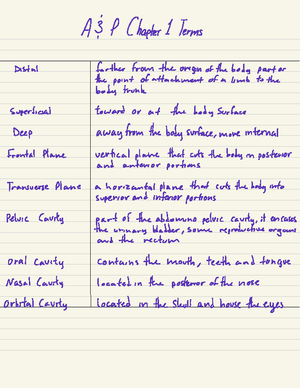 A & P Chapter 1 Terms
Distal farther from the origin of the body part or
the point of attachment of a limb to the
body trunk
Superficial toward or at the body surface
Deep away from the body surface, more internal
Frontal Plane vertical plane that cuts the body in posterior
and anterior portions
Transverse Plane a horizantal plane that cuts the body into
superior and inferior portions
Pelvic Cavity part of the abdomino pelvic cavity, it encases
the urinary bladder, some reproductive organs
and the rectum
Oral Cavity contains the mouth, teeth and tongue
Nasal Cavity located in the posterior of the nose
Orbital Cavity located in the skull and house the eyes